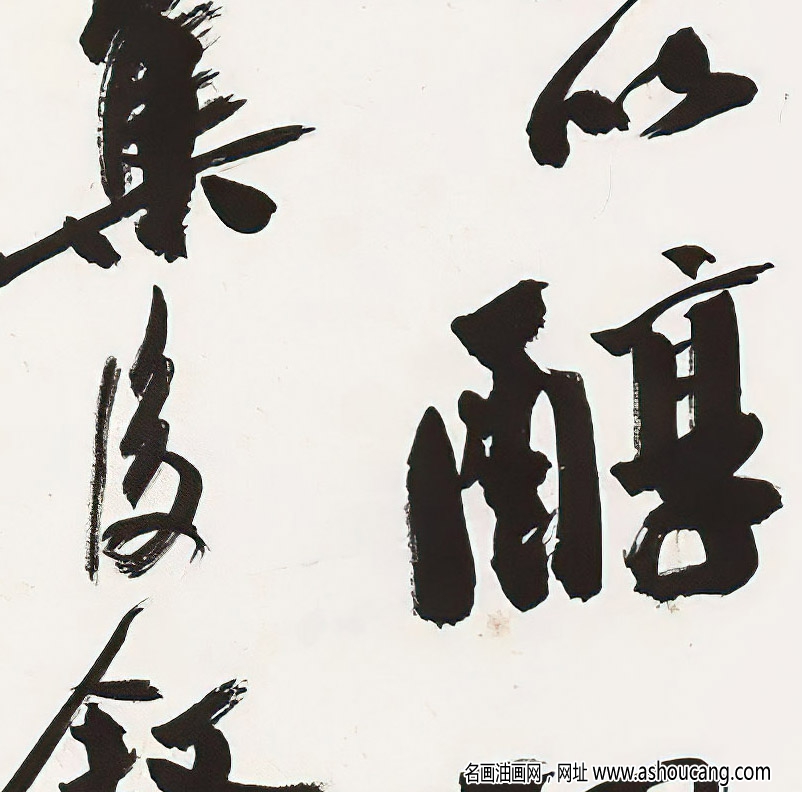 以醇
集後
名画油画网，网址 www.ashoucang.com